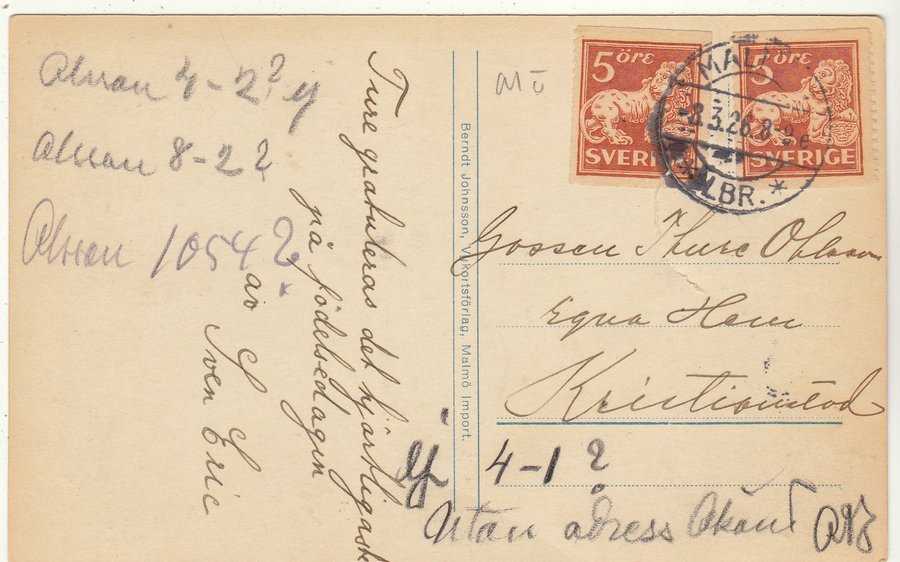 Ohsson 4-2? ej
Ohsson 8-2?
Ohsson 1054?
Ture gratuleras det hjärtligaste
på födelsedagen
av Sven Eric
Berndt Johnsson, Vykortsförlag, Malmö Import.
5 ÖRE
SVERIGE
5 ÖRE
SVERIGE
-8.3.26.8-
LBR.
Gossen Thure Ohlsson
Egna Hem
Kristianstad
ej 4-1?
Utan adress Okänd